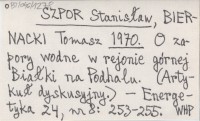 SZPOR Stanisław, BIER-
NACKI Tomasz 1970. O za-
pory wodne w rejonie górnej
Białki na Podhalu. (Arty-
kuł dyskusyjny.) — Energe-
tyka 24, nr 8: 253-255. WHP